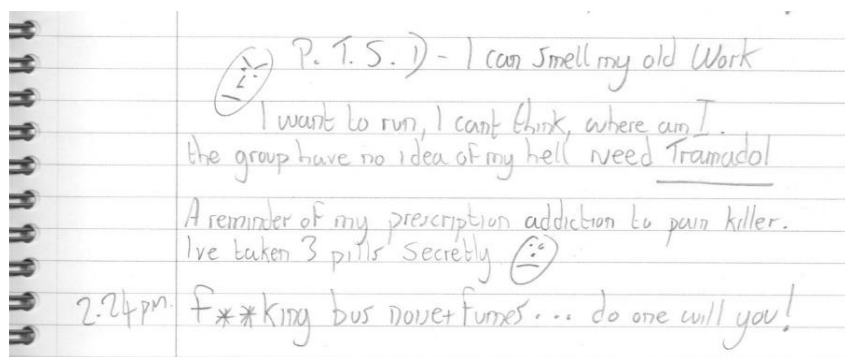 P. T. S. D - I can smell my old Work
I want to run, I cant think, where am I.
the group have no idea of my hell Need Tramadol
A reminder of my prescription addiction to pain killer.
Ive taken 3 pills secretly
2.24pm. F**king bus noise+fumes... do one will you!